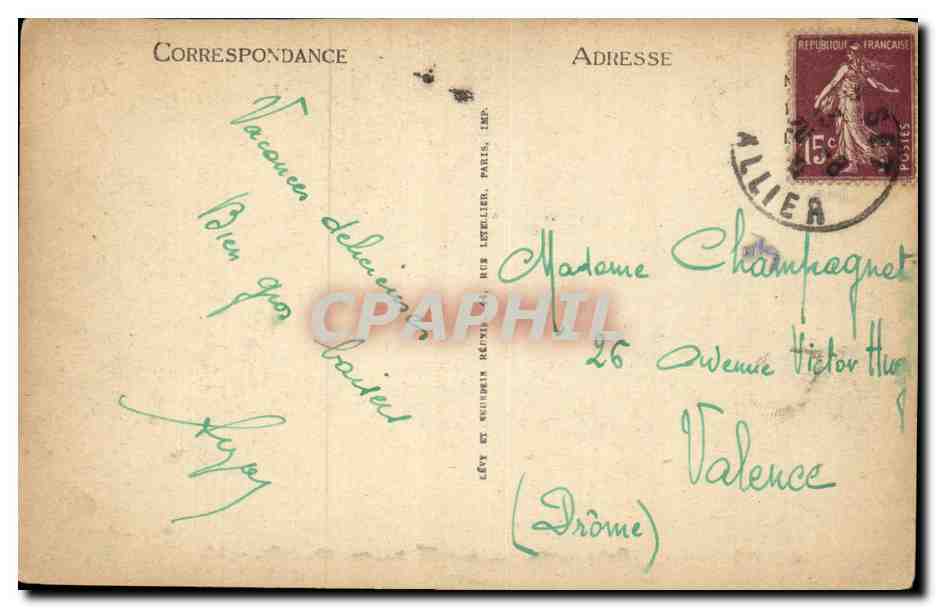 CORRESPONDANCE
Vacances délicieuses
Bien gros baisers
LÉVY ET NEURDEIN RÉUNIS 44, RUE LETELLIER, PARIS, IMP.
ADRESSE
REPUBLIQUE FRANÇAISE
15c
POSTES
ALLIER
Madame Champagnat
26 avenue Victor Hugo
Valence
(Drôme)
CPAPHIL